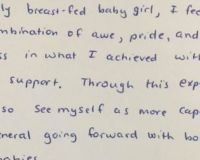 ly breast-fed baby girl, I fee
mbination of awe, pride, and
ss in what I achieved wit
support. Through this exp
so see myself as more cap
neral going forward with bo